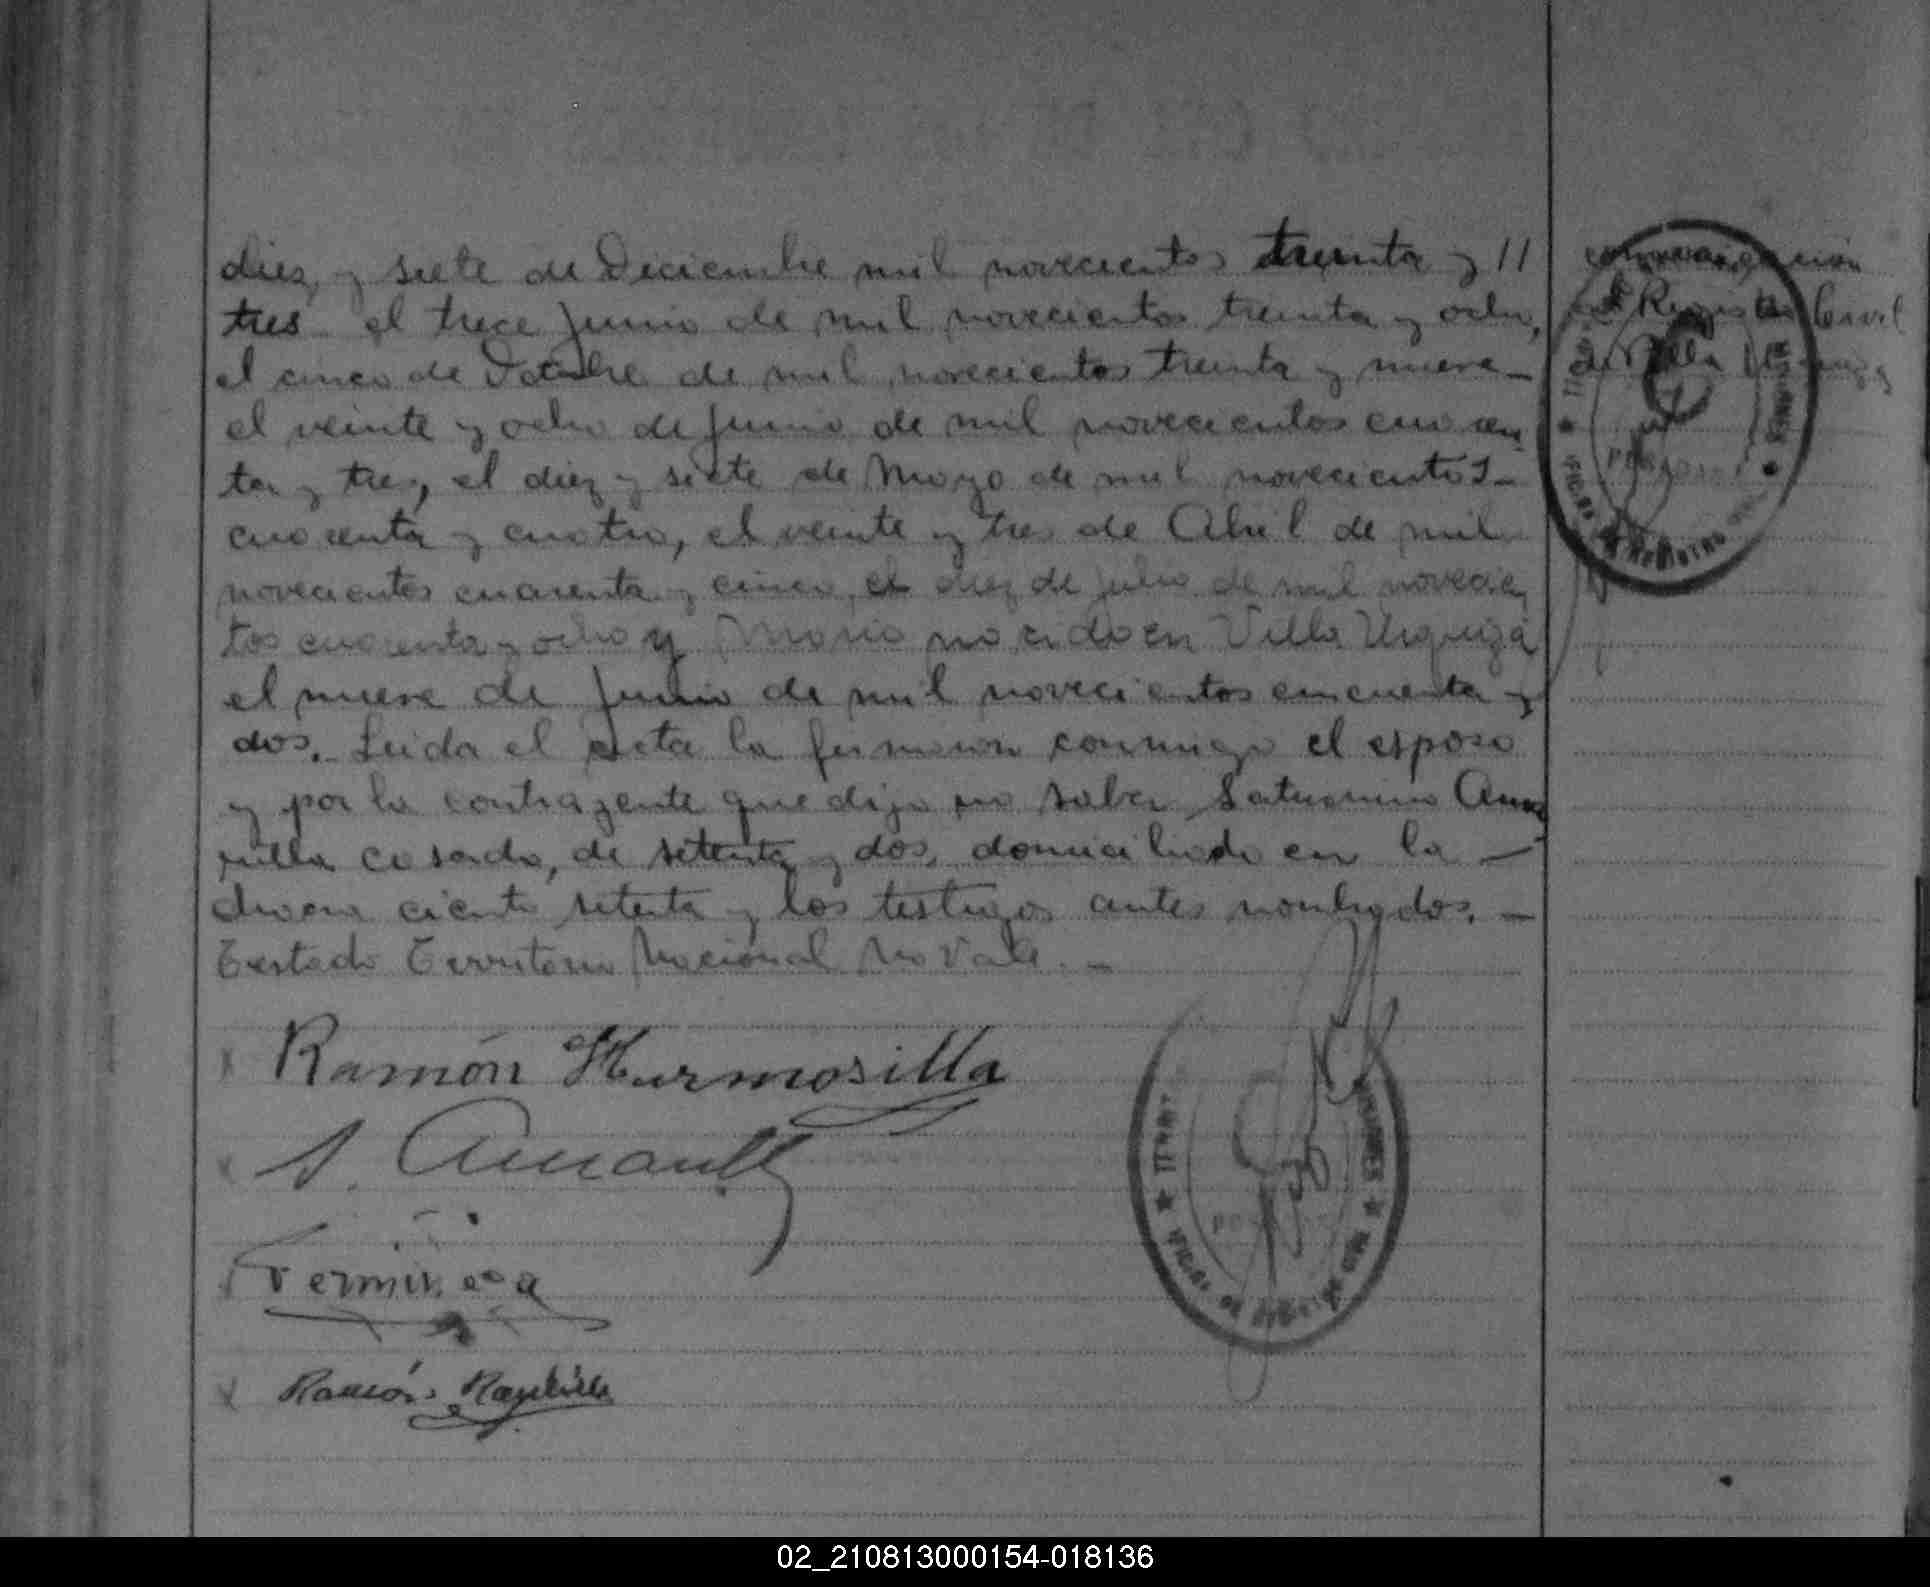 diez y siete de Diciembre mil novecientos treinta y //
tres el trece Junio de mil novecientos treinta y ocho,
el cinco de Octubre de mil novecientos treinta y nueve -
el veinte y ocho de Junio de mil novecientos cuaren
ta y tres, el diez y siete de Mayo de mil novecientos -
cuarenta y cuatro, el veinte y tres de Abril de mil
novecientos cuarenta y cinco, el diez de Julio de mil novecien
tos cuarenta y ocho y nacido en Villa Urquiza
el nueve de Junio de mil novecientos cincuenta y
dos. - Leida el acta la firmaron conmigo el esposo
y por la contrayente que dijo no saber Saturnino Ama
rilla casado, de setenta y dos, domiciliado en la -
chacra ciento setenta y los testigos antes nombrados. -
Testado Territorio Nacional No Vale. -
Ramón Hermosilla
S.
Ramón
comunicación
Registro Civil
de Villa Urquiza
MISIONES
POSADAS
02_210813000154-018136